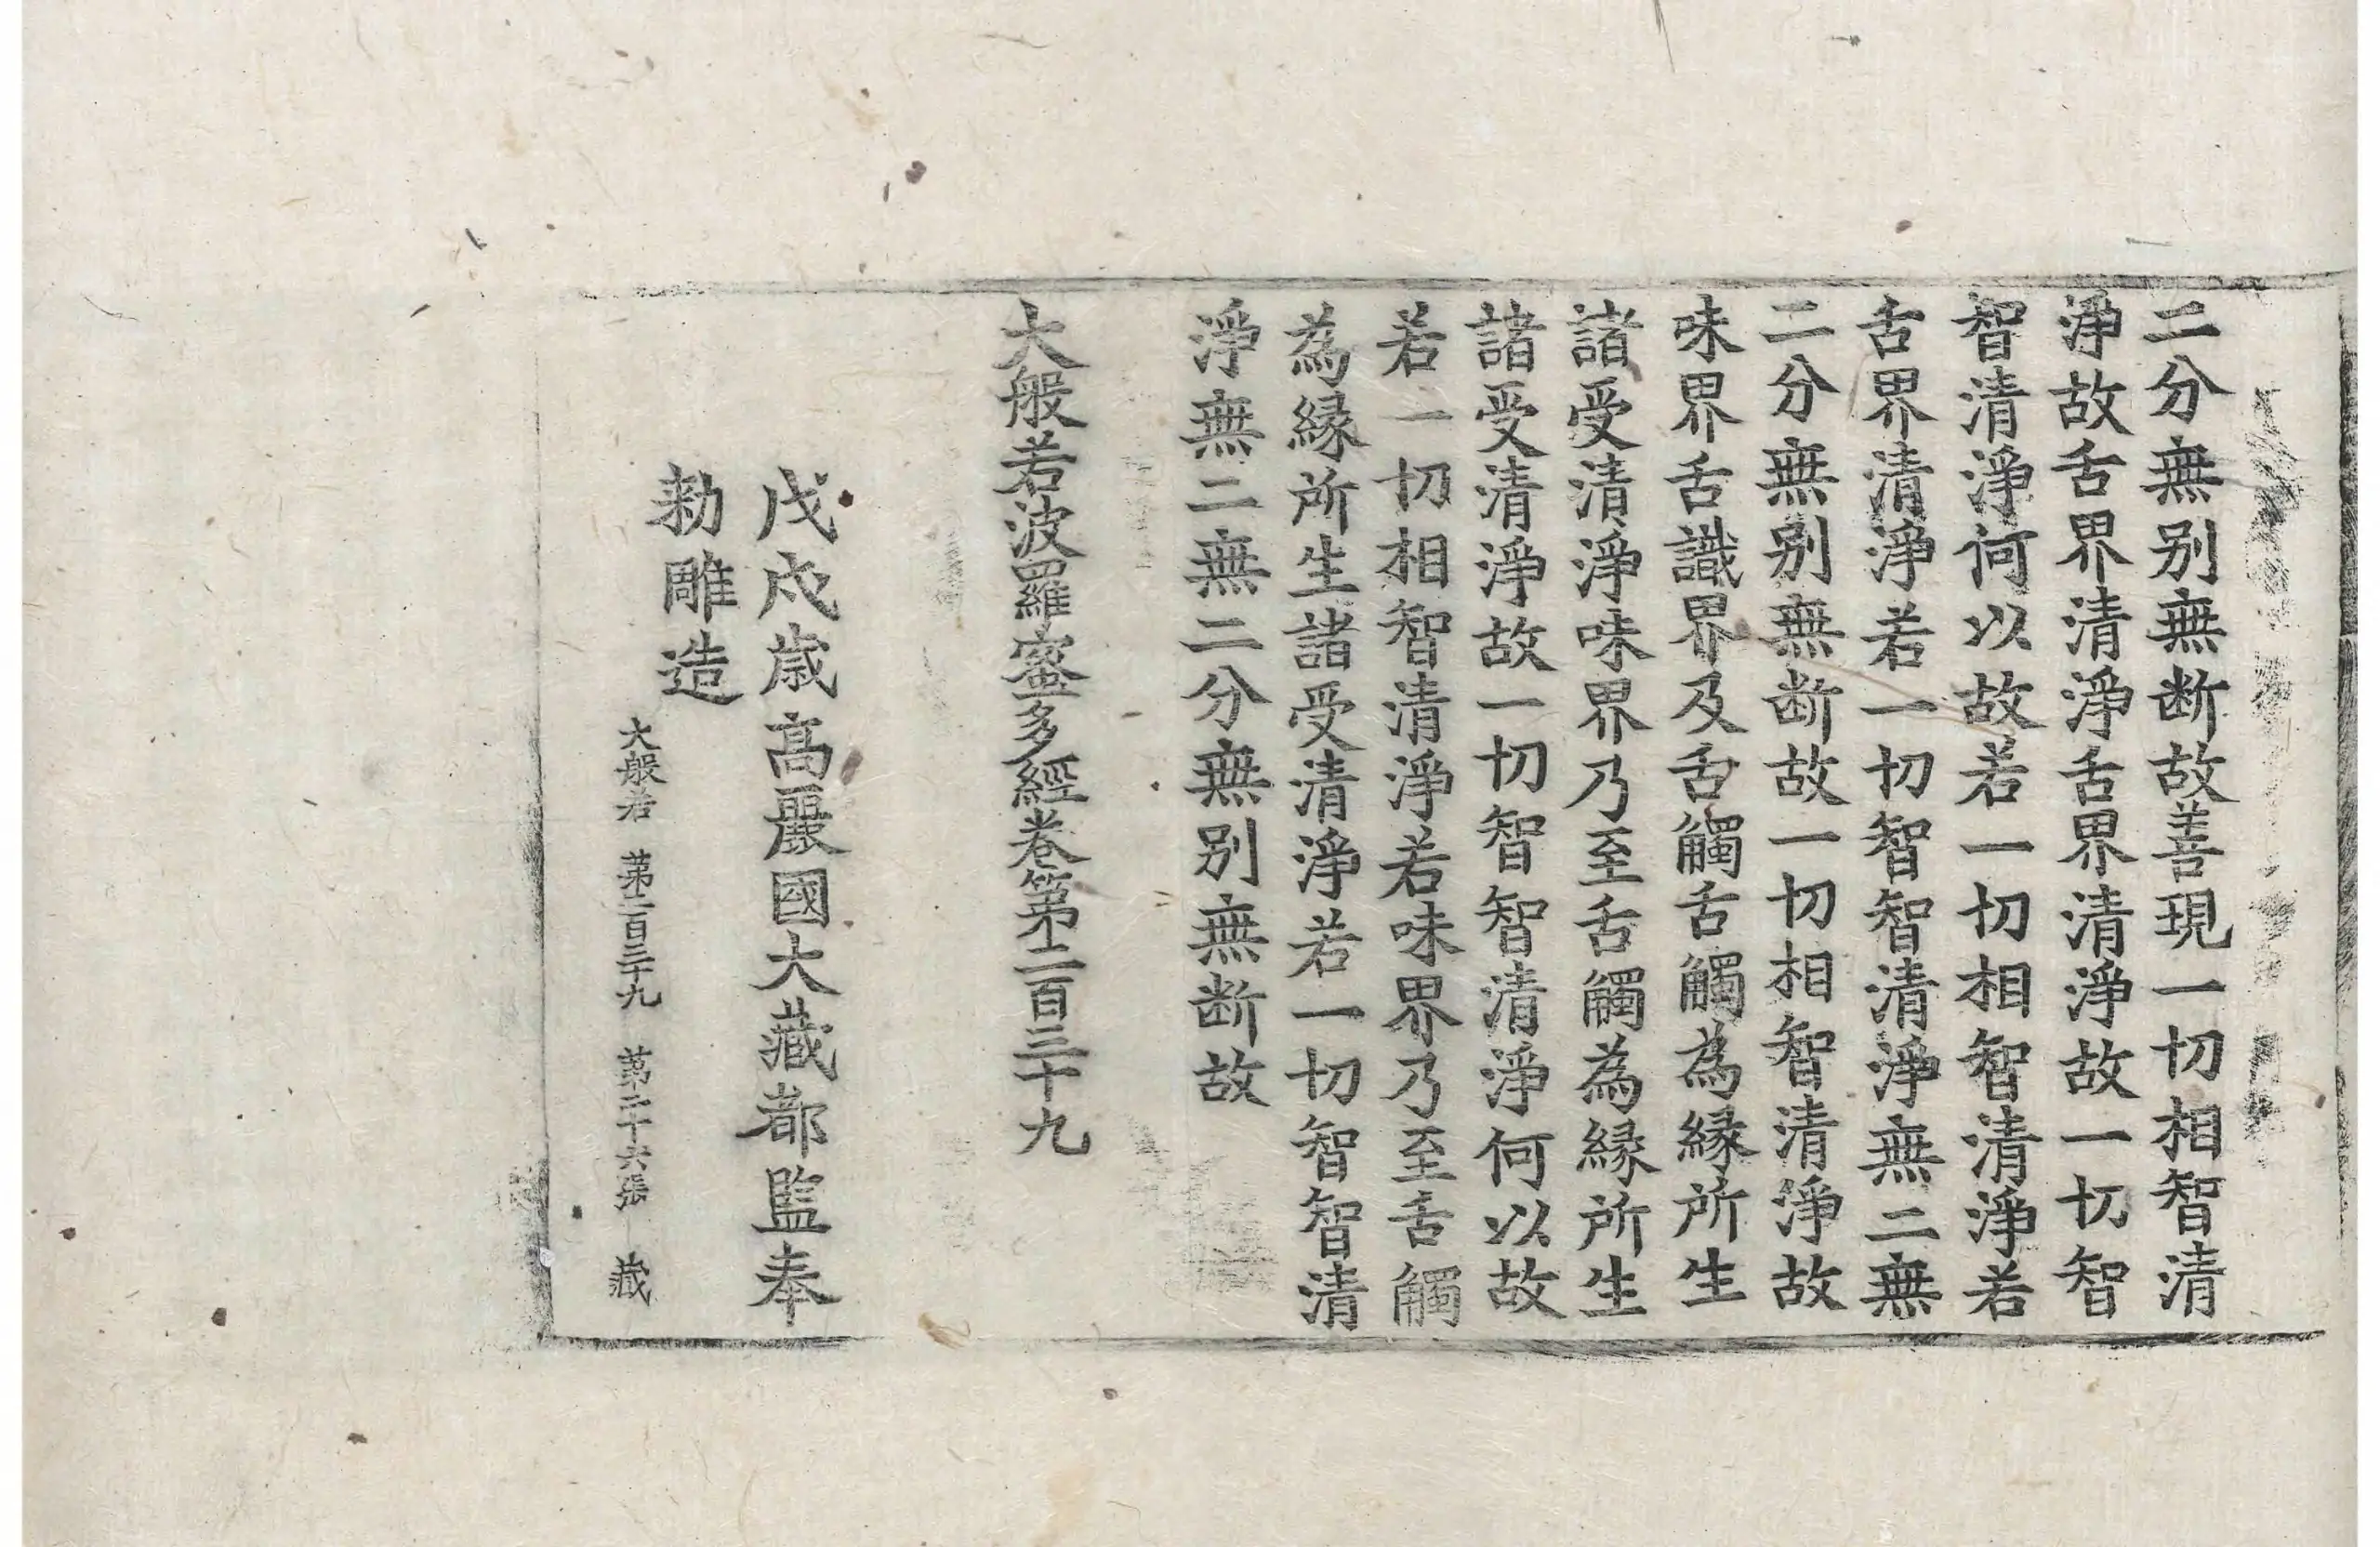 二分無别無断故善現一切相智清
淨故舌界清淨舌界清淨故一切智
智清淨何以故若一切相智清淨若
舌界清淨若一切智智清淨無二無
二分無别無断故一切相智清淨故
味界舌識界及舌觸舌觸為縁所生
諸受清淨味界乃至舌觸為縁所生
諸受清淨故一切智智清淨何以故
若一切相智清淨若味界乃至舌觸
為縁所生諸受清淨若一切智智清
淨無二無二分無别無断故
大般若波羅蜜多經卷第二百三十九
戊戌歳髙麗國大藏都監奉
勑雕造
大般若 第二百三十九 第二十六張 藏